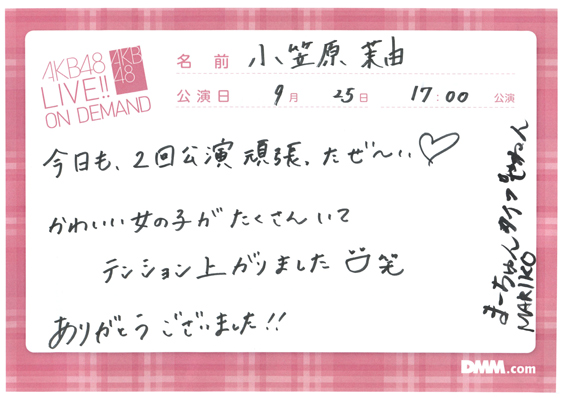 AKB48
LIVE!!
ON DEMAND
AKB
48
名前 小笠原茉由
公演日 9月 25日 17:00 公演
今日も、2回公演頑張ったぜ〜ぃ♡
かわいい女の子がたくさんいて
テンション上がりました 笑
ありがとうございました!!
まーちゅんタイプ
MARIKO
DMM.com